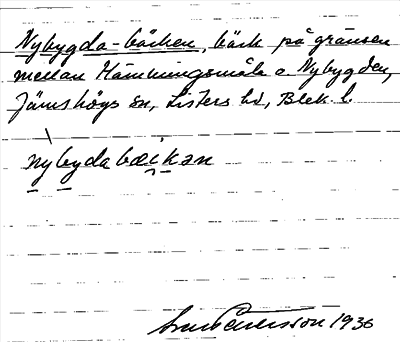 Nybygda-bäcken, bäck på gränsen
mellan Hämmingsmåla o. Nybygden,
Jämshögs sn, Listers hd, Blek. l.
nybydabæikən
1936